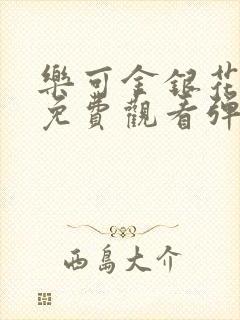 樂可金銀花
免費觀看彈
西島大介